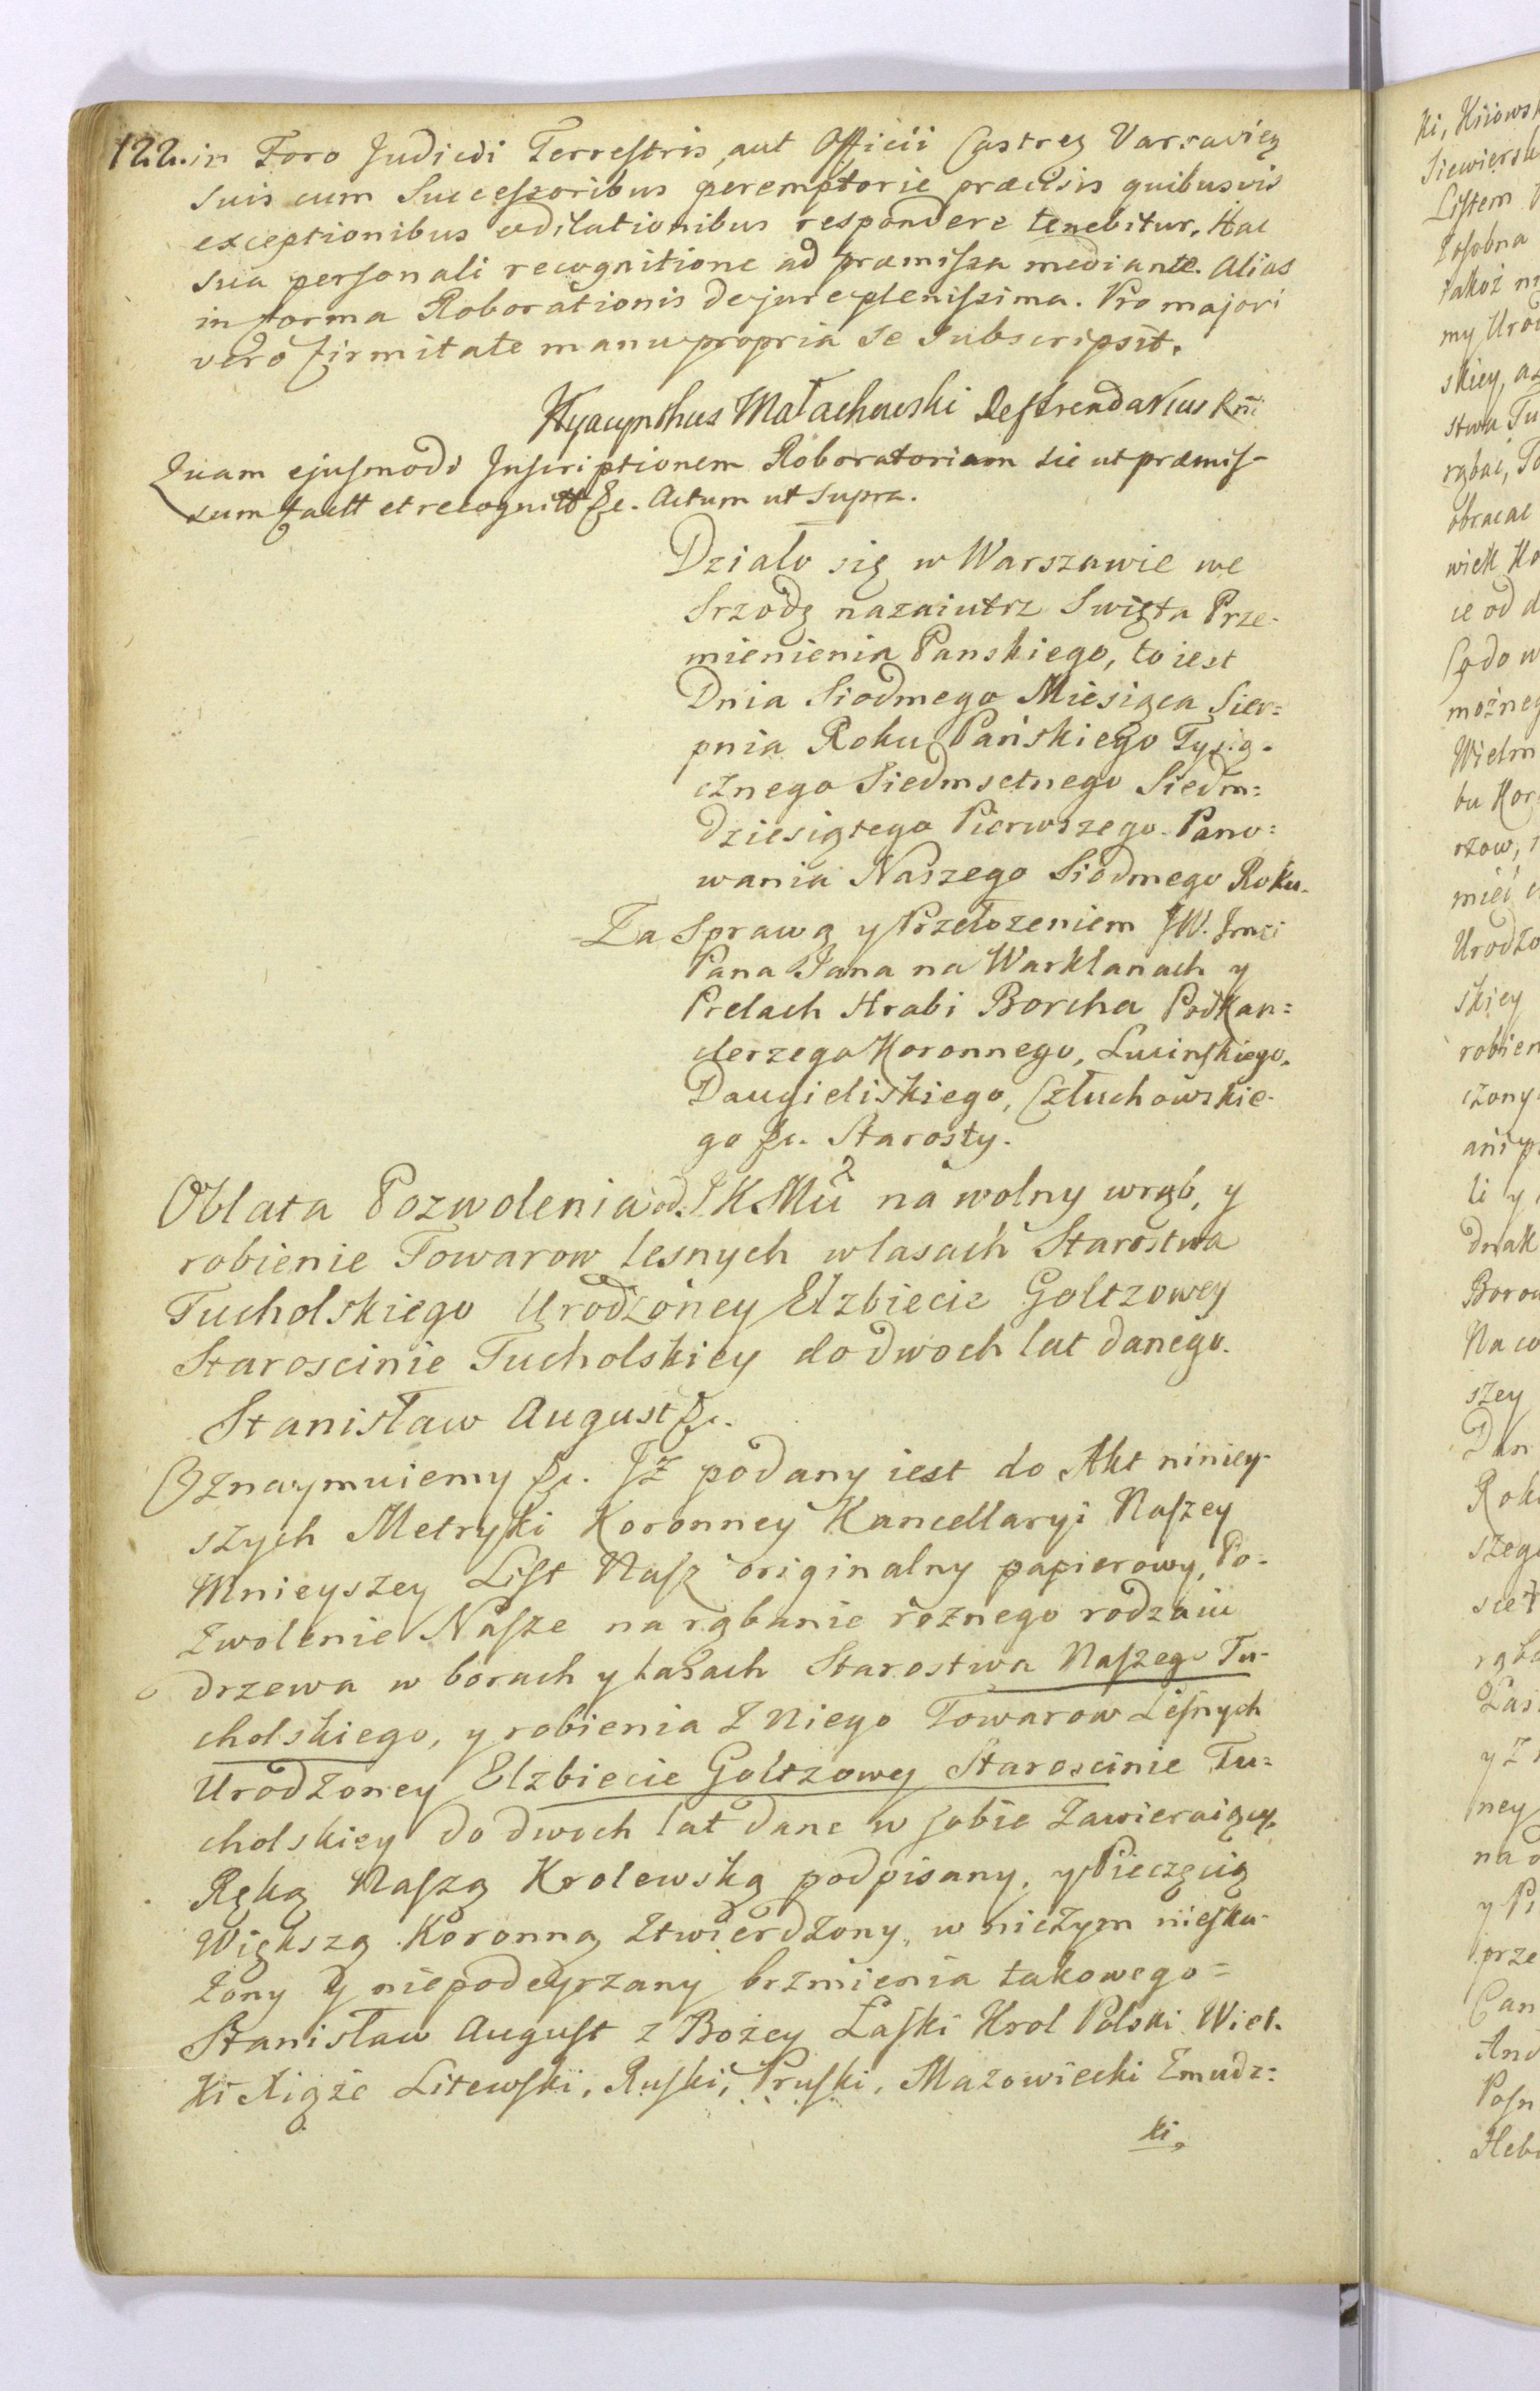 122. in Foro Judicii Terrestris, aut Officii Castren Varsavien
suis cum Successoribus peremptorie præcisis quibusvis
exceptionibus ac dilationibus respondere tenebitur. Hac
sua personali recognitione ad præmissa mediante. Alias
in forma Roborationis de jure plenissima. Pro majori
vero firmitate manu propria se subscripsit.
Hyacynthus Małachowski Refferendarius Rñi
Quam ejusmodi Inscriptionem Roboratoriam sic ut præmis-
sum factt et recognitt &c. Actum ut supra.
Działo się w Warszawie we
Srzodę nazaiutrz Swięta Prze-
mienienia Panskiego, to iest
Dnia Siodmego Miesiąca Sier=
pnia Roku Pańskiego Tysią-
cznego Siedmsetnego Siedm=
dziesiątego Pierwszego. Pano=
wania Naszego Siodmego Roku.
Za Sprawą y Przełozeniem JW. Jmci
Pana Jana na Warklanach y
Prelach Hrabi Borcha Podkan=
clerzego Koronnego, Lucinskiego,
Daugieliskiego, Człuchowskie-
go &c. Starosty.
Oblata Pozwolenia od JKMci na wolny wrąb, y
robienie Towarow lesnych w lasach Starostwa
Tucholskiego Urodzoney Elzbiecie Goltzowey
Staroscinie Tucholskiey do dwoch lat danego.
Stanisław August &c.
Oznaymuiemy &c. Jż podany iest do Akt niniey-
szych Metryki Koronney Kancellaryi Naszey
Mnieyszey List Nasz originalny papierowy, Po-
zwolenie Nasze na rąbanie roznego rodzaiu
drzewa w borach y lasach Starostwa Naszego Tu-
cholskiego, y robienia z niego Towarow Lesnych
Urodzoney Elzbiecie Goltzowey Staroscinie Tu=
cholskiey do dwoch lat dane w sobie zawieraiący,
Ręką Naszą Krolewską podpisany, y Pieczęcią
Większą Koronną ztwierdzony, w niczym nieska-
żony y niepodeyrzany brzmienia takowego=
Stanisław August z Bożey Łaski Krol Polski Wiel-
ki Xiąże Litewski, Ruski, Pruski, Mazowiecki Zmudz=
ki,
ki, Kiiows
Siewiersk
Listem
Posobna
iakoż
my Uro
skiey, a
stwa Tu
rąbac,
obracac
wiek
ie od
możneg
Wielm
rzow,
miec
Urodzo
skiey
robien
czony
ani p
li y
dnak
szey
Dan
Rok
szego
rąb
Las
ney
prze
Can
And
Posn